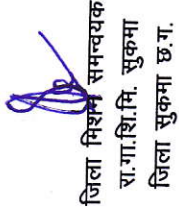 जिला मिशन समन्वयक
रा.गा.शि.मि. सुकमा
जिला सुकमा छ.ग.